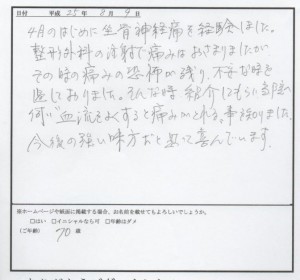 日付 平成 25年 8月 9日
4月のはじめに坐骨神経痛を経験しました。
整形外科の注射で痛みはおさまりましたが
その時の痛みの恐怖が残り、不安な時を
過しておりました。そんな時 紹介にもらい
何と血流をよくすると痛みがとれる。事を知りました。
今後の強い味方だと思って喜んでいます。
※ホームページや紙面に掲載する場合、お名前を載せてもよろしいでしょうか。
□はい □イニシャルなら可 □年齢はダメ
(ご年齢) 70 歳